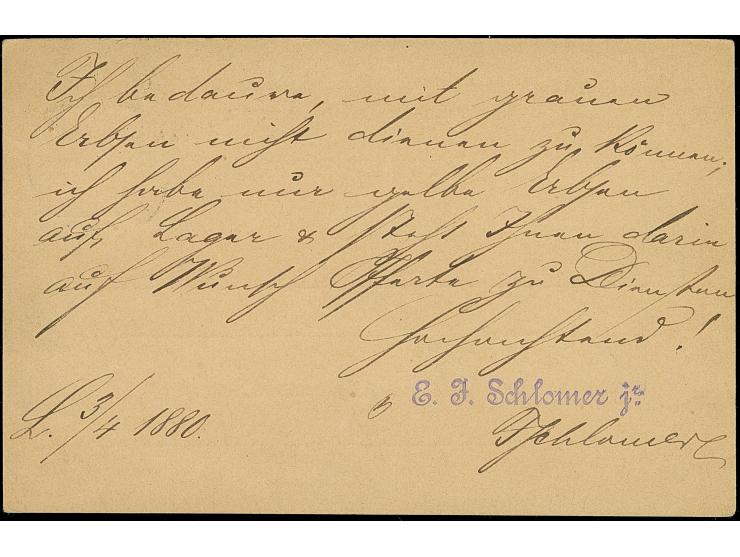 Ich bedaure, mit grauen
Erbsen nicht dienen zu können;
ich habe nur gelbe Erbsen
auf Lager & steht Ihnen darin
auf Wunsch Offerte zu Diensten
Hochachtend!
E. J. Schlomer jr.
L. 3/4 1880. JSchlomer